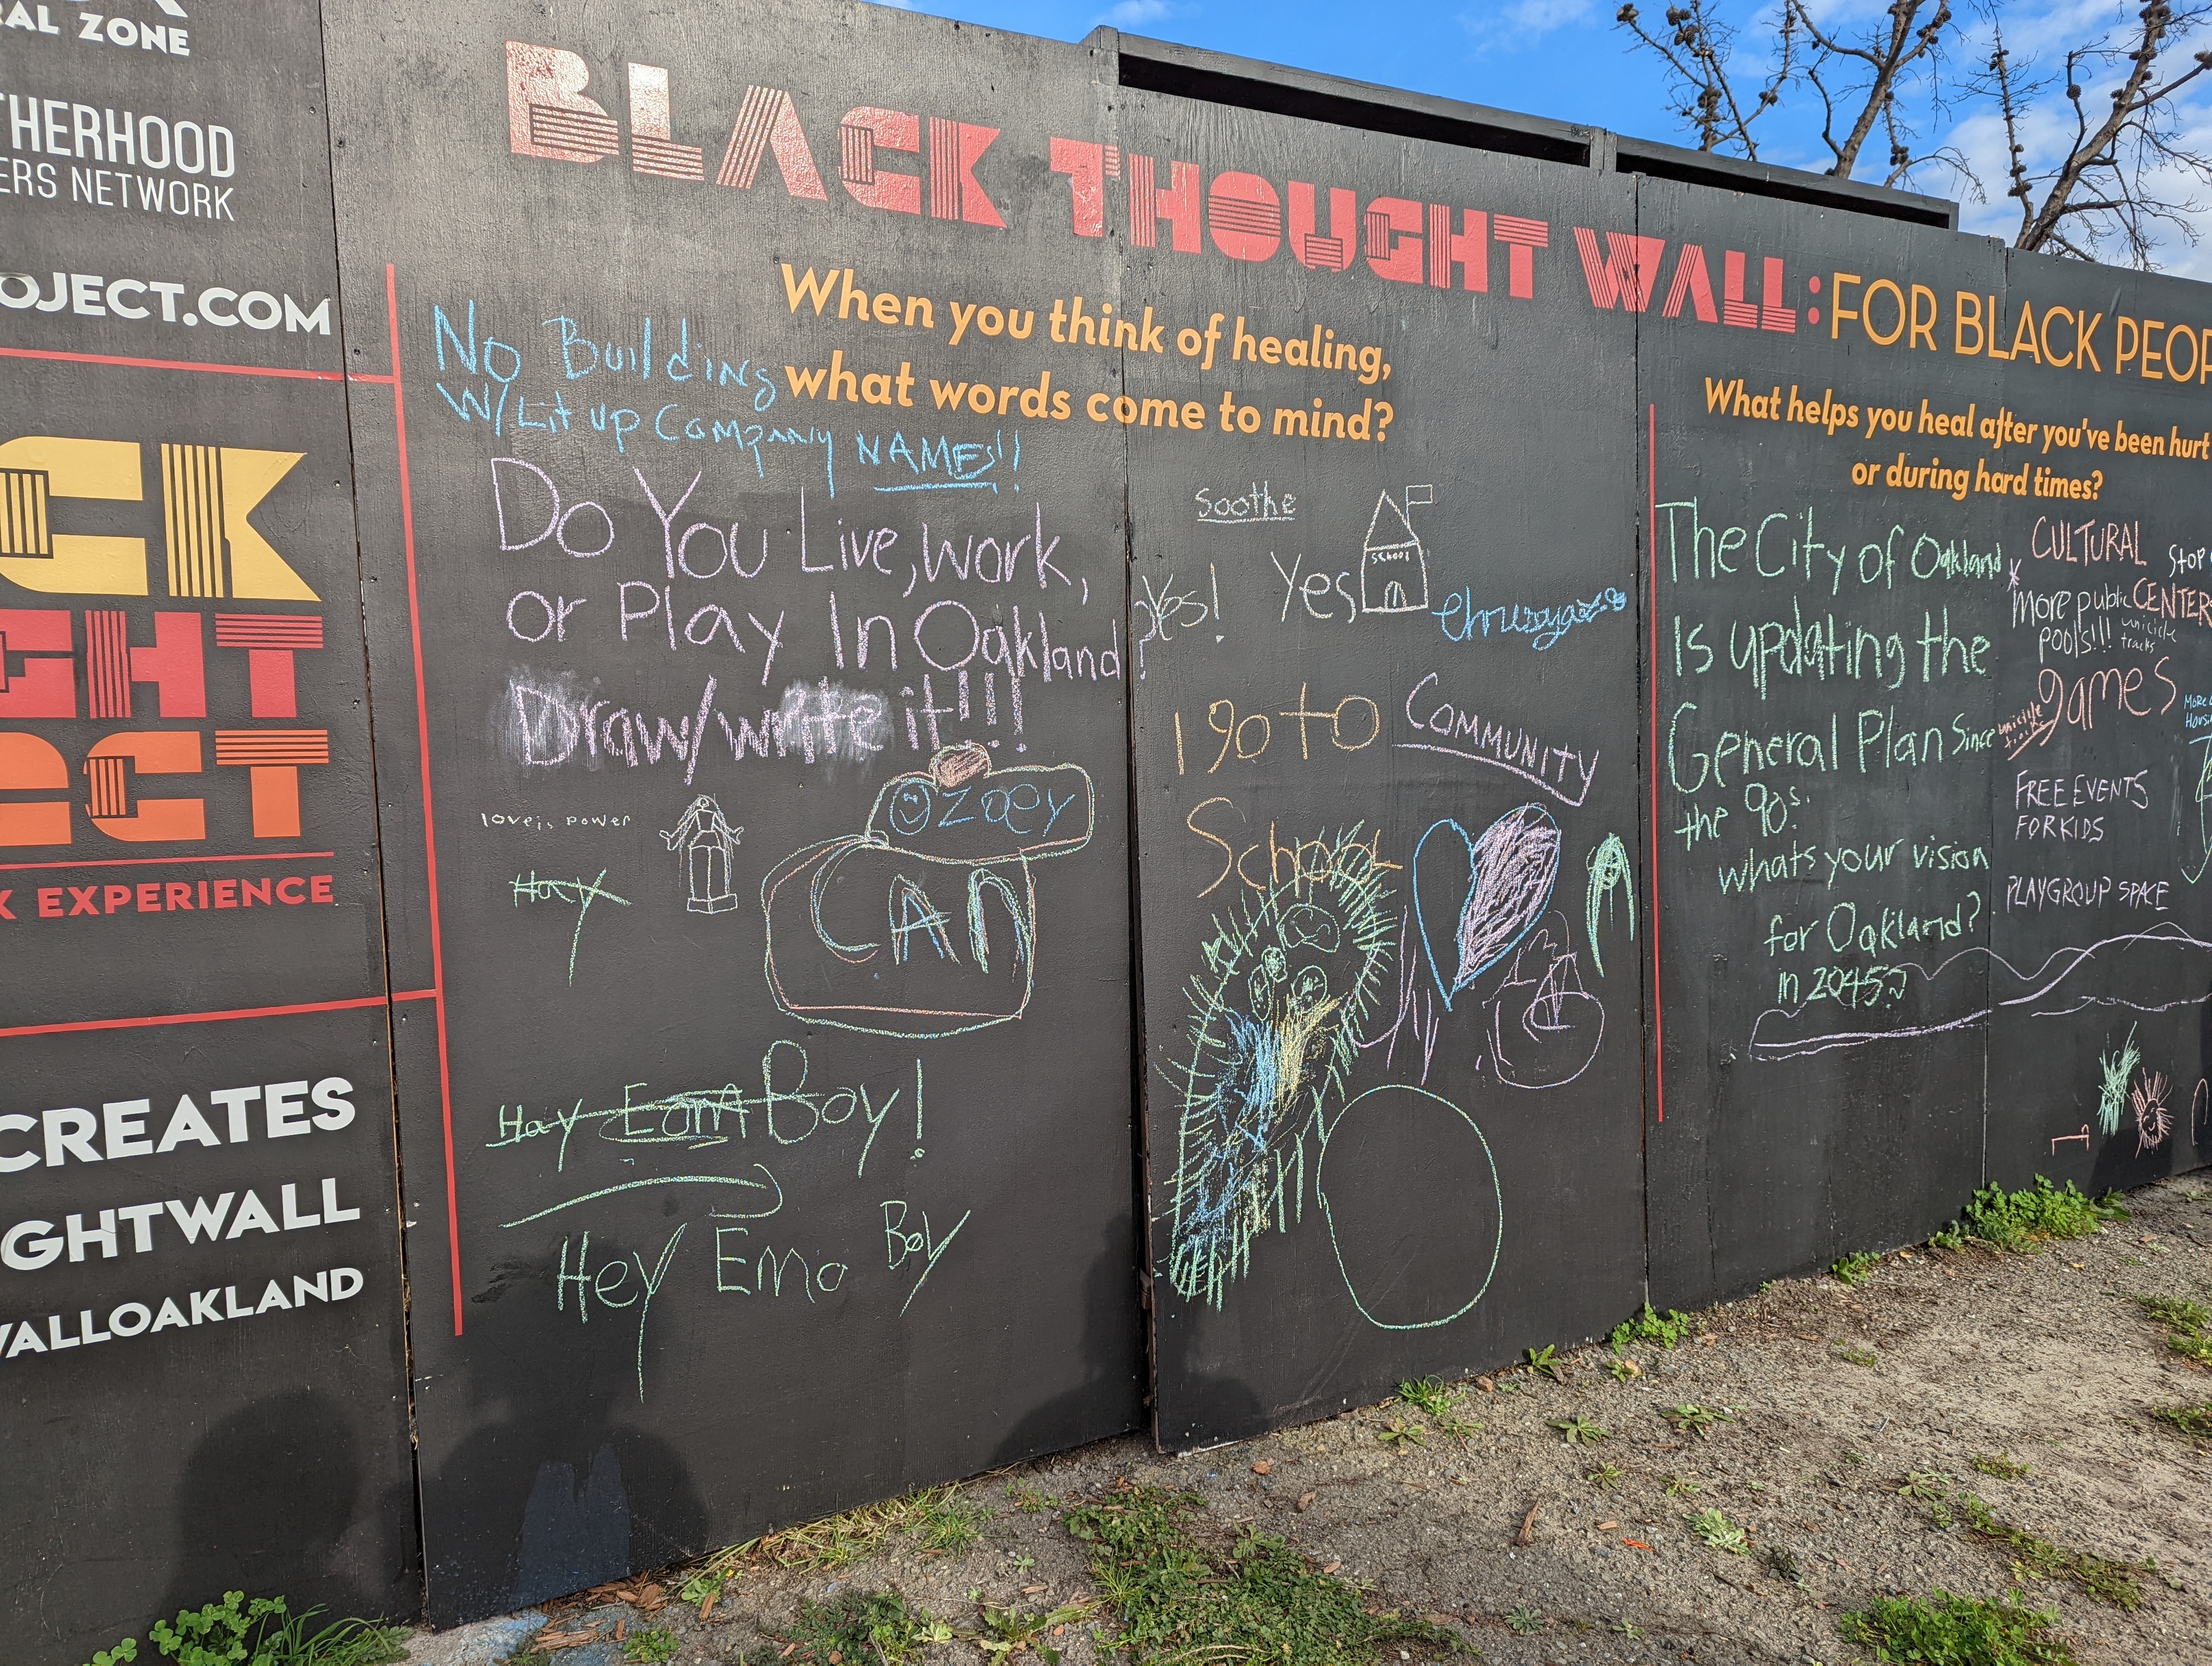 AL ZONE
THERHOOD
ERS NETWORK
OJECT.COM
CK
GHT
ECT
K EXPERIENCE
CREATES
GHTWALL
WALLOAKLAND
BLACK THOUGHT WALL: FOR BLACK PEOP
When you think of healing,
what words come to mind?
No Building
W/ Lit up Company NAMES!!
Do You Live, work,
or Play In Oakland?
Draw/write it!!!
love is power
Hay
Zoey
CAN
Hay Eom Boy!
Hey Emo Boy
Soothe
Yes!
Yes,
School
I go to
School
COMMUNITY
What helps you heal after you've been hurt
or during hard times?
The City of Oakland
Is updating the
General Plan Since
the 90s.
whats your vision
for Oakland?
in 2045?
CULTURAL
CENTER
Stop
* more public
pools!!!
unicicle
tracks
games
unicicle
MORE
HOUS
FREE EVENTS
FOR KIDS
PLAYGROUP SPACE